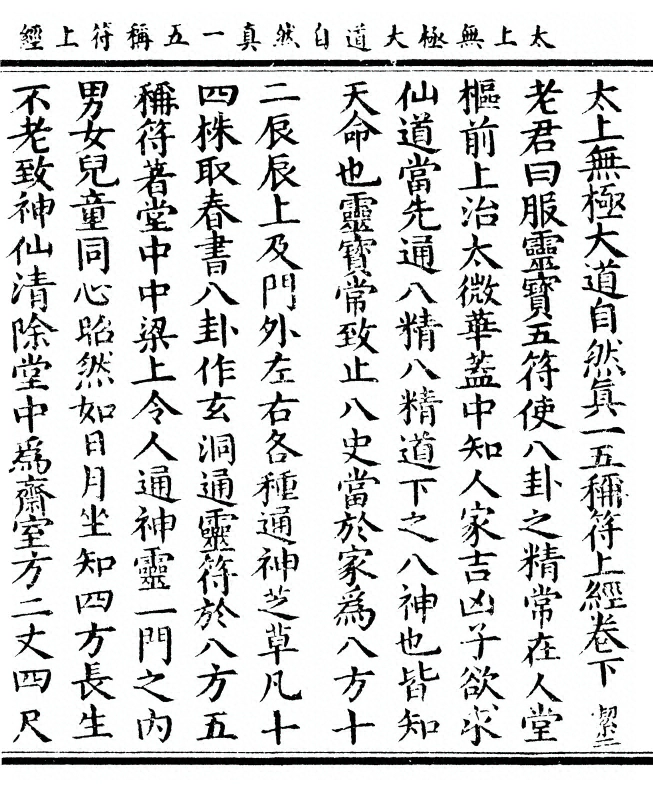 太上無極大道自然真一五稱符上經
太上無極大道自然眞一五稱符上經卷下 潔二
老君曰服靈寶五符使八卦之精常在人堂
樞前上治太微華蓋中知人家吉凶子欲求
仙道當先通八精八精道下之八神也皆知
天命也靈寶常致止八史當於家爲八方十
二辰辰上及門外左右各種通神芝草凡十
四株取春書八卦作玄洞通靈符於八方五
稱符著堂中中梁上令人通神靈一門之內
男女兒童同心昭然如日月坐知四方長生
不老致神仙清除堂中爲齋室方二丈四尺